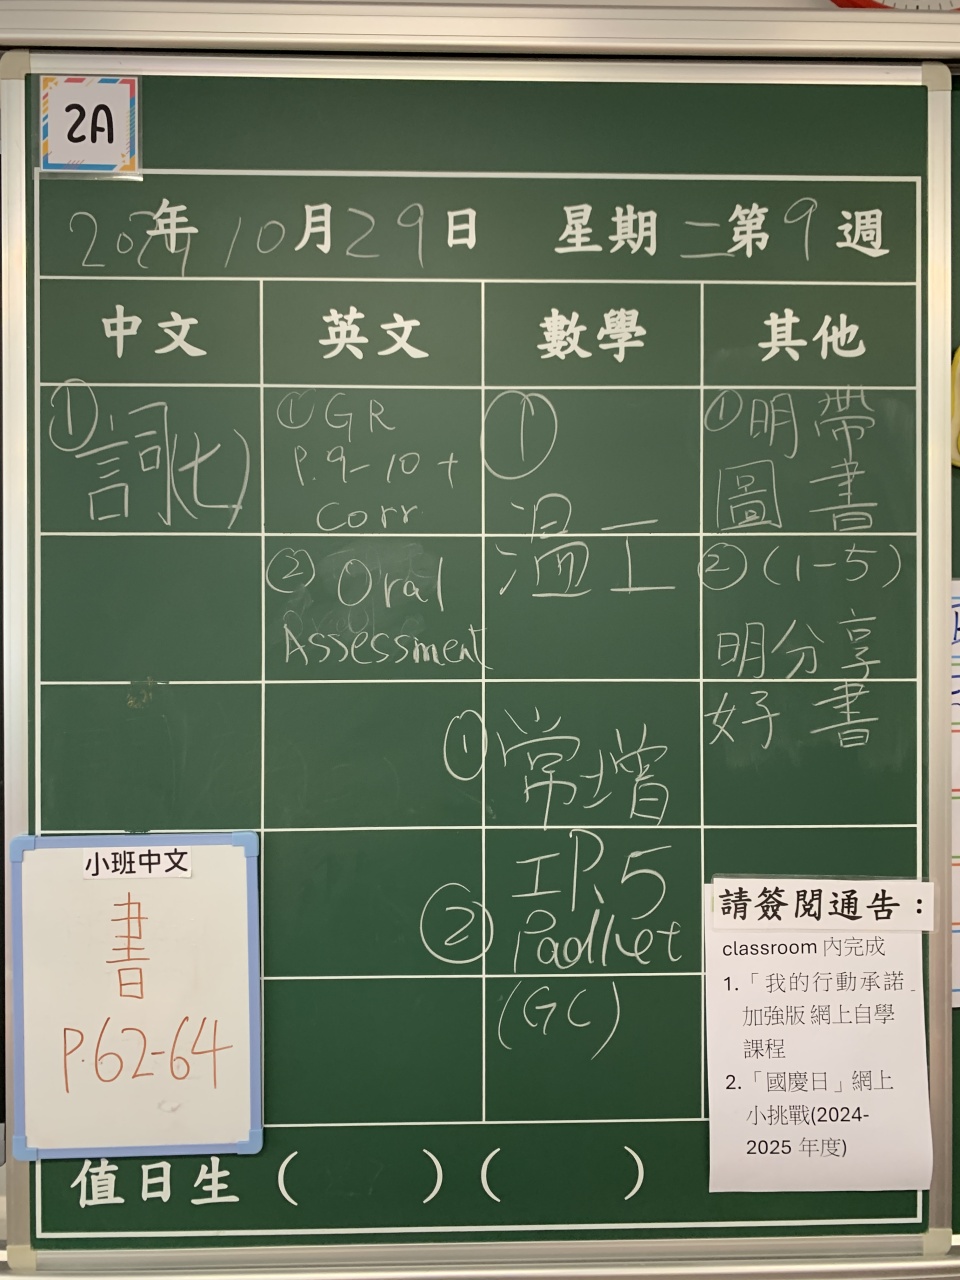 2A
2024年10月29日 星期二第9週
中文 英文 數學 其他
①詞(七)
①GR
P.9-10+
Corr
②Oral
Assessment
①
溫工
①常增
工P.5
②Padlet
(GC)
①明帶
圖書
②(1-5)
明分享
好書
小班中文
書
P.62-64
請簽閱通告：
classroom 內完成
1.「我的行動承諾_
加強版 網上自學
課程
2.「國慶日」網上
小挑戰(2024-
2025 年度)
值日生 ( ) ( )